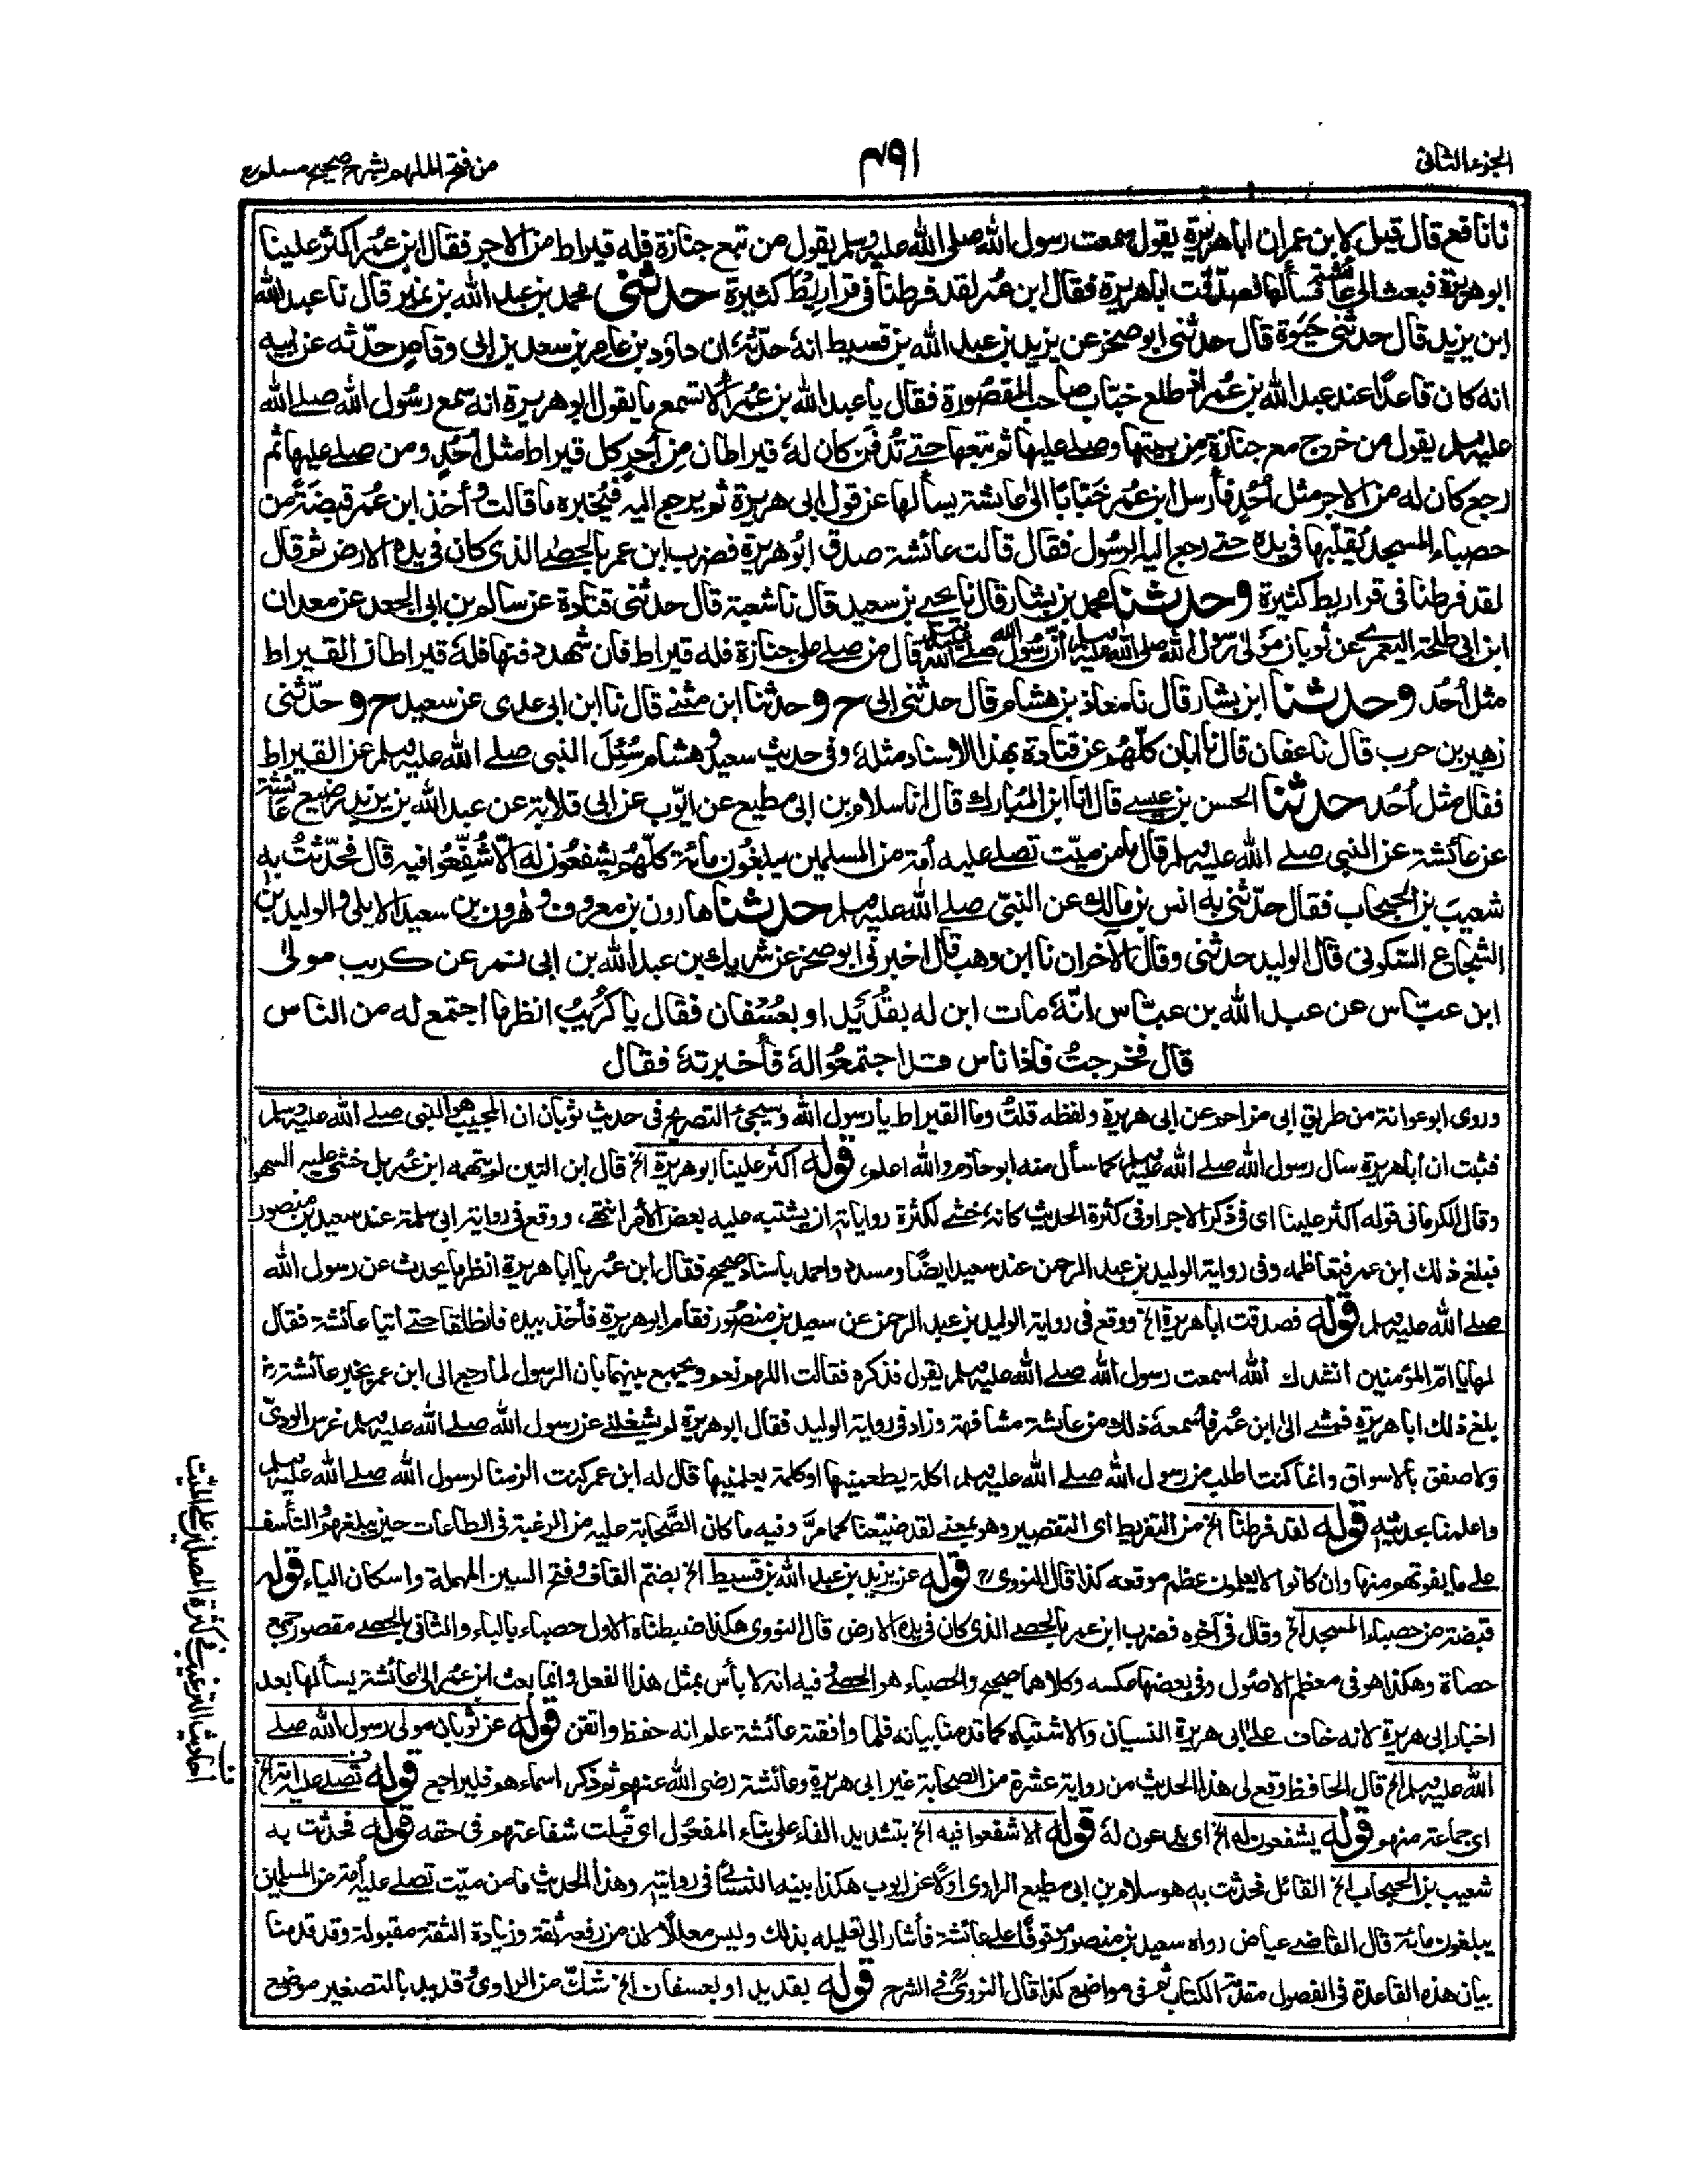 الجزء الثانى
٤٩١
من فتح الملهم بشرح صحيح مسلم
نا نافع قال قيل لابن عمر ان ابا هريرة يقول سمعت رسول الله صلى الله عليه وسلم يقول من تبع جنازة فله قيراط من الاجر فقال ابن عمر اكثر علينا
ابو هريرة فبعث الى عائشة فسألها فصدقت ابا هريرة فقال ابن عمر لقد فرطنا فى قراريط كثيرة حدثنى محمد بن عبد الله بن نمير قال نا عبد الله
ابن يزيد قال حدثنى حيوة قال حدثنى ابو صخر عن يزيد بن عبد الله بن قسيط انه حدثه ان داود بن عامر بن سعد بن ابى وقاص حدثه عن ابيه
انه كان قاعدا عند عبد الله بن عمر اذ طلع خباب صاحب المقصورة فقال يا عبد الله بن عمر ألا تسمع ما يقول ابو هريرة انه سمع رسول الله صلے الله
عليه وسلم يقول من خرج مع جنازة من بيتها وصلے عليها ثم تبعها حتے تدفن كان له قيراطان من أجر كل قيراط مثل أحد ومن صلے عليها ثم
رجع كان له من الاجر مثل أحد فأرسل ابن عمر خبابا الى عائشة يسألها عن قول ابى هريرة ثم يرجع اليه فيخبره ما قالت وأخذ ابن عمر قبضة من
حصباء المسجد يقلبها فى يده حتے رجع اليه الرسول فقال قالت عائشة صدق ابو هريرة فضرب ابن عمر بالحصے الذى كان فى يده الارض ثم قال
لقد فرطنا فى قراريط كثيرة وحدثنا محمد بن بشار قال نا يحيے بن سعيد قال نا شعبة قال حدثنى قتادة عن سالم بن ابى الجعد عن معدان
ابن ابى طلحة اليعمرے عن ثوبان مولى رسول الله صلى الله عليه وسلم ان رسول الله صلے الله عليه وسلم قال من صلے على جنازة فله قيراط فان شهد دفنها فله قيراطان القيراط
مثل أحد وحدثنا ابن بشار قال نا معاذ بن هشام قال حدثنى ابى ح وحدثنا ابن مثنے قال نا ابن ابى عدى عن سعيد ح وحدثنى
زهير بن حرب قال نا عفان قال نا ابان كلهم عن قتادة بهذا الاسناد مثله وفى حديث سعيد وهشام سئل النبى صلے الله عليه وسلم عن القيراط
فقال مثل أحد حدثنا الحسن بن عيسے قال انا ابن المبارك قال انا سلام بن ابى مطيع عن ايوب عن ابى قلابة عن عبد الله بن يزيد رضيع عائشة
عن عائشة عن النبى صلے الله عليه وسلم قال ما من ميت تصلے عليه أمة من المسلمين يبلغون مائة كلهم يشفعون له الا شفعوا فيه قال فحدثت به
شعيب بن الحبحاب فقال حدثنى به انس بن مالك عن النبى صلے الله عليه وسلم حدثنا هارون بن معروف وهرون بن سعيد الايلى والوليد بن
الشجاع السكونى قال الوليد حدثنى وقال الآخران نا ابن وهب قال اخبرنى ابو صخر عن شريك بن عبد الله بن ابى نمر عن كريب مولى
ابن عباس عن عبد الله بن عباس انه مات ابن له بقديد او بعسفان فقال يا كريب انظر ما اجتمع له من الناس
قال فخرجت فاذا ناس قد اجتمعوا له فأخبرته فقال
وروى ابو عوانة من طريق ابى مزاحم عن ابى هريرة ولفظه قلت وما القيراط يا رسول الله وسيجئ التصريح فى حديث ثوبان ان المجيب هو النبى صلے الله عليه وسلم
فثبت ان ابا هريرة سأل رسول الله صلے الله عليه وسلم كما سأل منه ابو حازم والله اعلم، قوله اكثر علينا ابو هريرة الخ قال ابن التين لم يتهمه ابن عمر بل خشى عليه السهو
وقال الكرمانى قوله اكثر علينا اى فى ذكر الاجر او فى كثرة الحديث كأنه خشے لكثرة رواياته ان يشتبه عليه بعض الأمر انتهے، ووقع فى رواية ابى سلمة عند سعيد بن منصور
فبلغ ذلك ابن عمر فتعاظمه وفى رواية الوليد بن عبد الرحمن عند سعيد ايضا ومسدد واحمد باسناد صحيح فقال ابن عمر يا ابا هريرة انظر ما يحدث عن رسول الله
صلے الله عليه وسلم قوله فصدقت ابا هريرة الخ ووقع فى رواية الوليد بن عبد الرحمن عن سعيد بن منصور فقام ابو هريرة فأخذ بيده فانطلقا حتے أتيا عائشة فقال
لها يا ام المؤمنين انشدك الله اسمعت رسول الله صلے الله عليه وسلم يقول فذكره فقالت اللهم نعم ويجمع بينهما بان الرسول لما رجع الى ابن عمر بخبر عائشة رض
بلغ ذلك ابا هريرة فمشے الى ابن عمر فأسمعه ذلك من عائشة مشافهة وزاد فى رواية الوليد فقال ابو هريرة لم يشغلنے عن رسول الله صلے الله عليه وسلم غرس الودى
ولا صفق بالاسواق وانما كنت اطلب من رسول الله صلے الله عليه وسلم اكلة يطعمنيها او كلمة يعلمنيها قال له ابن عمر كنت الزمنا لرسول الله صلے الله عليه وسلم
واعلمنا بحديثه قوله لقد فرطنا الخ من التفريط اى التقصير وهو بمعنے لقد ضيعنا كما مر وفيه ما كان الصحابة عليه من الرغبة فى الطاعات حين يبلغهم والتأسف
علے ما يفوتهم منها وان كانوا لا يعلمون عظم موقعه كذا قال النووى قوله عن يزيد بن عبد الله بن قسيط الخ بضم القاف وفتح السين المهملة واسكان الياء قوله
قبضة من حصباء المسجد الخ وقال فى آخره فضرب ابن عمر بالحصے الذى كان فى يده الارض قال النووى هكذا ضبطناه الاول حصباء بالباء والثانى بالحصے مقصور جمع
حصاة وهكذا هو فى معظم الاصول وفى بعضها عكسه وكلاهما صحيح والحصباء هو الحصے وفيه انه لا بأس بمثل هذا الفعل وانما بعث ابن عمر الى عائشة يسألها بعد
اخبار ابى هريرة لانه خاف علے ابى هريرة النسيان والاشتباه كما قدمنا بيانه فلما وافقته عائشة علم انه حفظ واتقن قوله عن ثوبان مولى رسول الله صلے
الله عليه وسلم الخ قال الحافظ وقع لى هذا الحديث من رواية عشرة من الصحابة غير ابى هريرة وعائشة رضى الله عنهم ثم ذكر اسماءهم فليراجع قوله تصلے عليه امة الخ
اى جماعة منهم قوله يشفعون له الخ اى يدعون له قوله الا شفعوا فيه الخ بتشديد الفاء على بناء المفعول اى قبلت شفاعتهم فى حقه قوله فحدثت به
شعيب بن الحبحاب الخ القائل فحدثت به هو سلام بن ابى مطيع الراوى اولا عن ايوب هكذا بينه النسائى فى روايته وهذا الحديث ما من ميت تصلے عليه أمة من المسلمين
يبلغون مائة قال القاضے عياض رواه سعيد بن منصور موقوفا علے عائشة فأشار الى تعليله بذلك وليس معللا لان من رفعه ثقة وزيادة الثقة مقبولة وقد قدمنا
بيان هذه القاعدة فى الفصول مقدمة الكتاب ثم فى مواضع كذا قال النووى فى الشرح قوله بقديد او بعسفان الخ شك من الراوى وقديد بالتصغير موضع
احاديث الترغيب فى كثرة المصلين على الميت